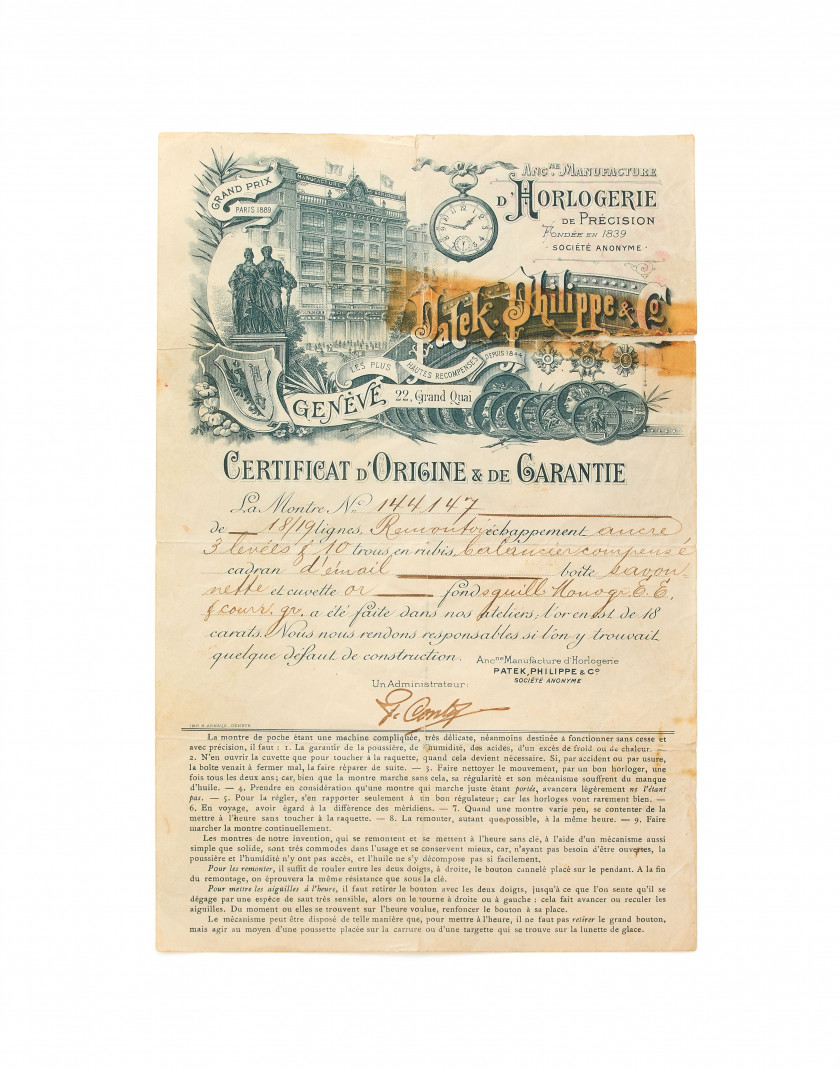 GRAND PRIX
PARIS 1889
Anc.ne Manufacture
d'Horlogerie
de Précision
Fondée en 1839
Société Anonyme
Patek, Philippe & Co
LES PLUS HAUTES RECOMPENSES DEPUIS 1844
GENÈVE
22, Grand Quai
Certificat d'Origine & de Garantie
La Montre No 144147
de 18/19 lignes, Remontoir échappement ancre
3 levées & 10 trous en rubis, balancier compensé
cadran d'émail boîte savon-
nette et cuvette or fonds guill. Monogr. E.E.
& cour. gr. a été faite dans nos ateliers; l'or en est de 18
carats. Nous nous rendons responsables si l'on y trouvait
quelque défaut de construction.
Anc.ne Manufacture d'Horlogerie
PATEK, PHILIPPE & Co
SOCIÉTÉ ANONYME
Un Administrateur:
La montre de poche étant une machine compliquée, très délicate, néanmoins destinée à fonctionner sans cesse et
avec précision, il faut : 1. La garantir de la poussière, de l'humidité, des acides, d'un excès de froid ou de chaleur.
2. N'en ouvrir la cuvette que pour toucher à la raquette, quand cela devient nécessaire. Si, par accident ou par usure,
la boîte venait à fermer mal, la faire réparer de suite. — 3. Faire nettoyer le mouvement, par un bon horloger, une
fois tous les deux ans; car, bien que la montre marche sans cela, sa régularité et son mécanisme souffrent du manque
d'huile. — 4. Prendre en considération qu'une montre qui marche juste étant portée, avancera légèrement ne l'étant
pas. — 5. Pour la régler, s'en rapporter seulement à un bon régulateur; car les horloges vont rarement bien. —
6. En voyage, avoir égard à la différence des méridiens. — 7. Quand une montre varie peu, se contenter de la
mettre à l'heure sans toucher à la raquette. — 8. La remonter, autant que possible, à la même heure. — 9. Faire
marcher la montre continuellement.
Les montres de notre invention, qui se remontent et se mettent à l'heure sans clé, à l'aide d'un mécanisme aussi
simple que solide, sont très commodes dans l'usage et se conservent mieux, car, n'ayant pas besoin d'être ouvertes, la
poussière et l'humidité n'y ont pas accès, et l'huile ne s'y décompose pas si facilement.
Pour les remonter, il suffit de rouler entre les deux doigts, à droite, le bouton cannelé placé sur le pendant. A la fin
du remontage, on éprouvera la même résistance que sous la clé.
Pour mettre les aiguilles à l'heure, il faut retirer le bouton avec les deux doigts, jusqu'à ce que l'on sente qu'il se
dégage par une espèce de saut très sensible, alors on le tourne à droite ou à gauche : cela fait avancer ou reculer les
aiguilles. Du moment ou elles se trouvent sur l'heure voulue, renfoncer le bouton à sa place.
Le mécanisme peut être disposé de telle manière que, pour mettre à l'heure, il ne faut pas retirer le grand bouton,
mais agir au moyen d'une poussette placée sur la carrure ou d'une targette qui se trouve sur la lunette de glace.